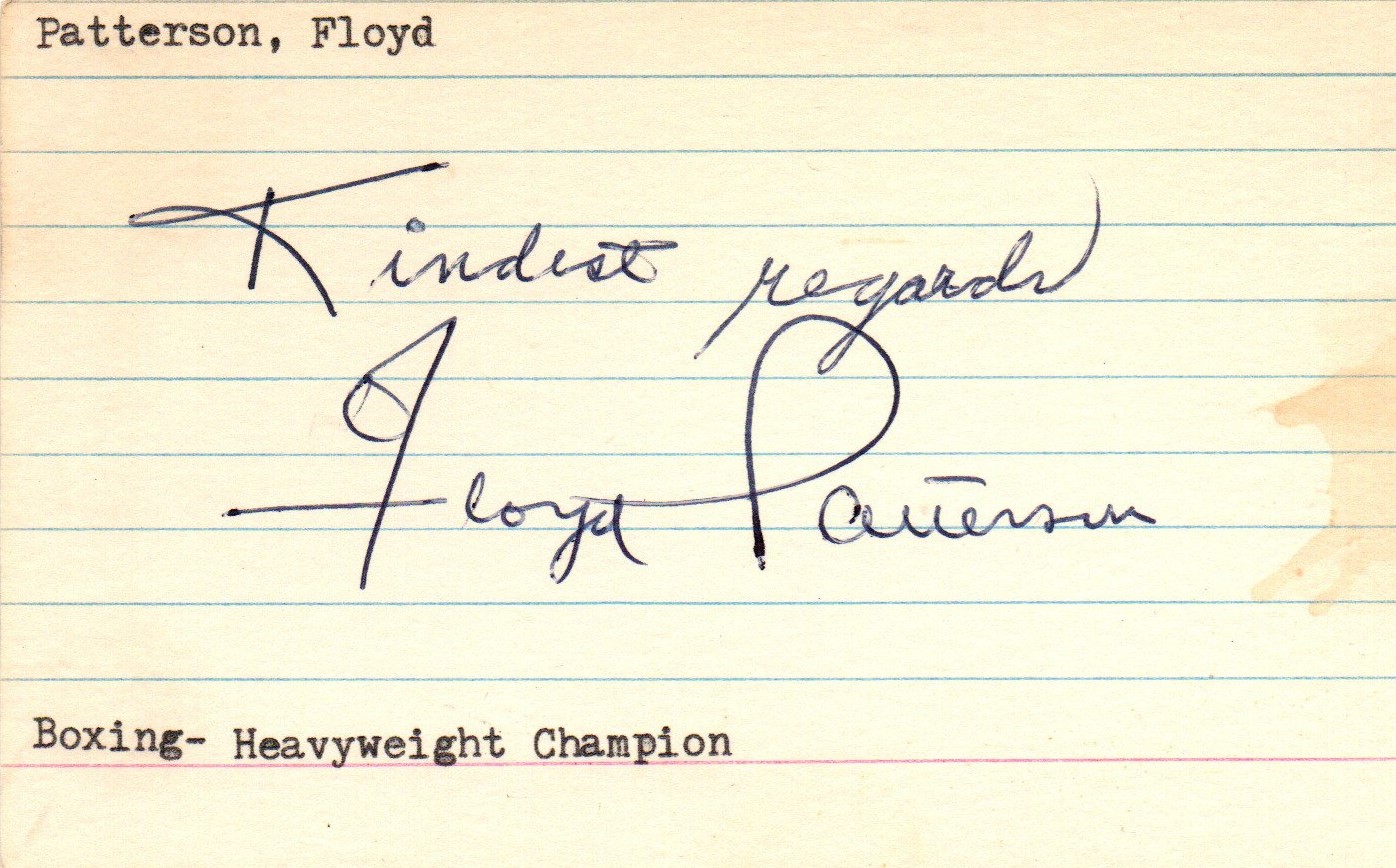 Patterson, Floyd
Kindest regards
Floyd Patterson
Boxing- Heavyweight Champion